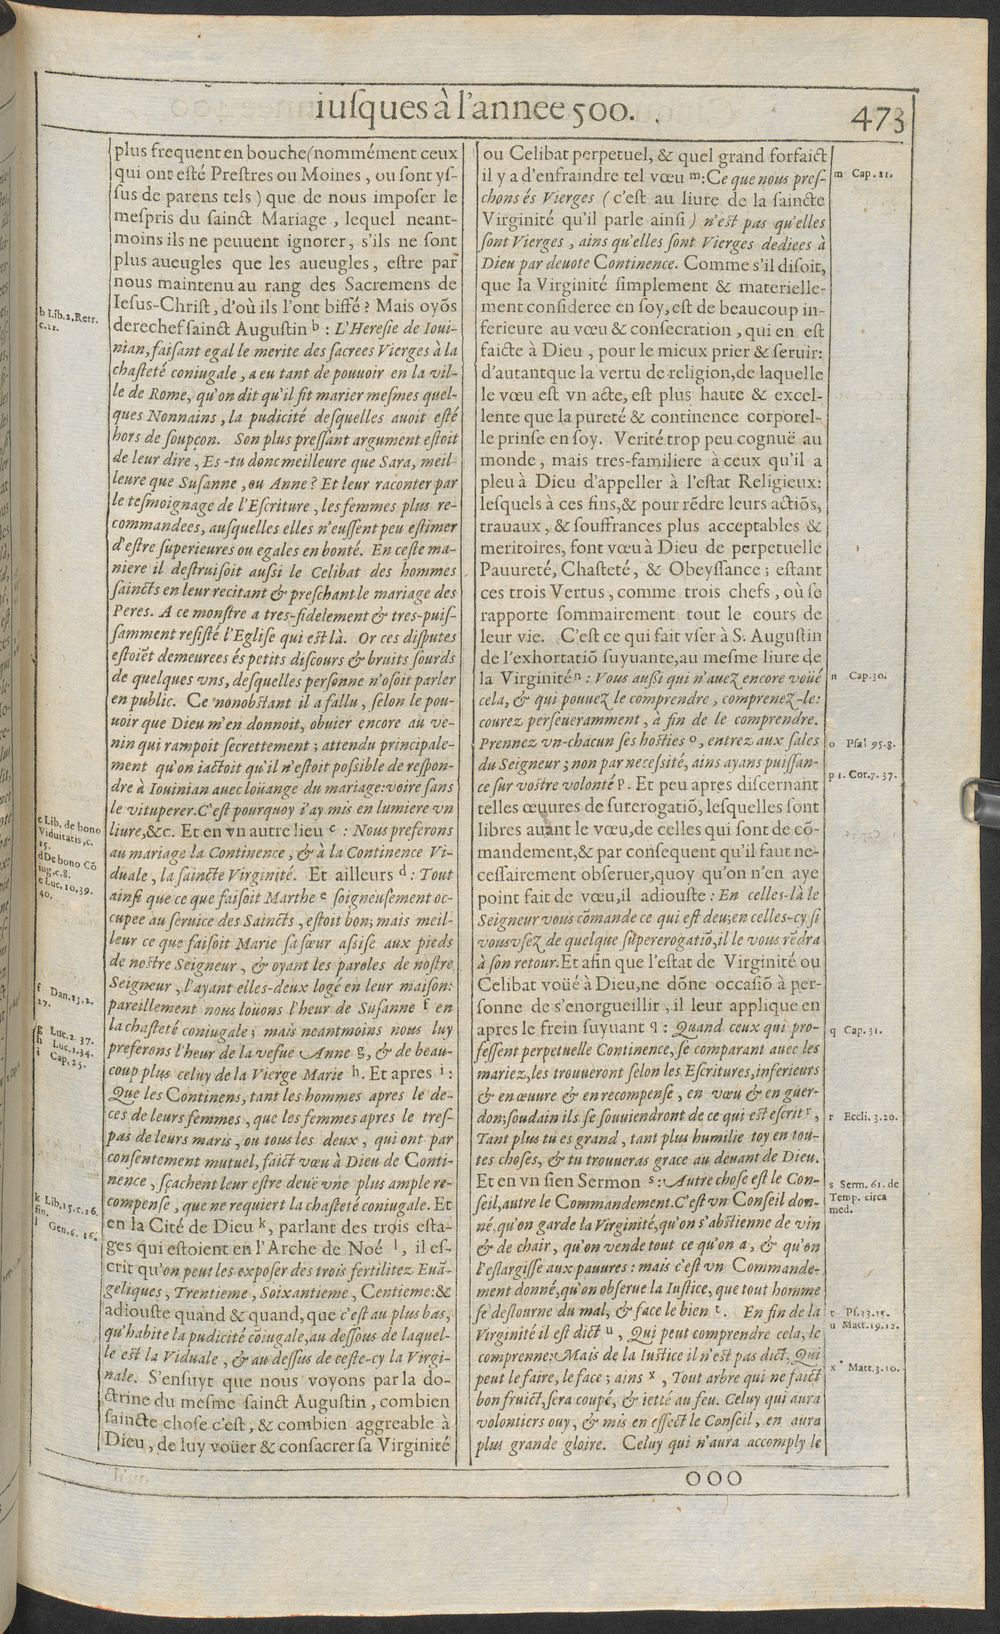 iuſques à l'annee 500.
473
plus frequent en bouche (nommément ceux
qui ont eſté Preſtres ou Moines, ou ſont yſ-
ſus de parens tels) que de nous impoſer le
meſpris du ſainct Mariage, lequel neant-
moins ils ne peuuent ignorer, s'ils ne ſont
plus aueugles que les aueugles, eſtre par
nous maintenu au rang des Sacremens de
Ieſus-Chriſt, d'où ils l'ont biffé? Mais oyõs
derechef ſainct Auguſtin b : L'Hereſie de Ioui-
nian, faiſant egal le merite des ſacrees Vierges à la
chaſteté coniugale, a eu tant de pouuoir en la vil-
le de Rome, qu'on dit qu'il fit marier meſmes quel-
ques Nonnains, la pudicité deſquelles auoit eſté
hors de ſoupçon. Son plus preſſant argument eſtoit
de leur dire, Es-tu donc meilleure que Sara, meil-
leure que Suſanne, ou Anne? Et leur raconter par
le teſmoignage de l'Eſcriture, les femmes plus re-
commandees, auſquelles elles n'euſſent peu eſtimer
d'eſtre ſuperieures ou egales en bonté. En ceſte ma-
niere il deſtruiſoit auſſi le Celibat des hommes
ſaincts en leur recitant & preſchant le mariage des
Peres. A ce monſtre a tres-fidelement & tres-puiſ-
ſamment reſiſté l'Egliſe qui eſt là. Or ces diſputes
eſtoiẽt demeurees és petits diſcours & bruits ſourds
de quelques vns, deſquelles perſonne n'oſoit parler
en public. Ce nonobſtant il a fallu, ſelon le pou-
uoir que Dieu m'en donnoit, obuier encore au ve-
nin qui rampoit ſecrettement; attendu principale-
ment qu'on iactoit qu'il n'eſtoit poſſible de reſpon-
dre à Iouinian auec loüange du mariage: voire ſans
le vituperer. C'eſt pourquoy i'ay mis en lumiere vn
liure, &c. Et en vn autre lieu c : Nous preferons
au mariage la Continence, & à la Continence Vi-
duale, la ſaincte Virginité. Et ailleurs d : Tout
ainſi que ce que faiſoit Marthe e ſoigneuſement oc-
cupee au ſeruice des Saincts, eſtoit bon; mais meil-
leur ce que faiſoit Marie ſa ſœur aſſiſe aux pieds
de noſtre Seigneur, & oyant les paroles de noſtre
Seigneur, l'ayant elles-deux logé en leur maiſon:
pareillement nous loüons l'heur de Suſanne f en
la chaſteté coniugale; mais neantmoins nous luy
preferons l'heur de la vefue Anne g, & de beau-
coup plus celuy de la Vierge Marie h. Et apres i :
Que les Continens, tant les hommes apres le de-
ces de leurs femmes, que les femmes apres le treſ-
pas de leurs maris, ou tous les deux, qui ont par
conſentement mutuel, faict vœu à Dieu de Conti-
nence, ſçachent leur eſtre deuë vne plus ample re-
compenſe, que ne requiert la chaſteté coniugale. Et
en la Cité de Dieu k, parlant des trois eſta-
ges qui eſtoient en l'Arche de Noé l, il eſ-
crit qu'on peut les expoſer des trois fertilitez Euã-
geliques, Trentieme, Soixantieme, Centieme: &
adiouſte quand & quand, que c'eſt au plus bas,
qu'habite la pudicité cõiugale, au deſſous de laquel-
le eſt la Viduale, & au deſſus de ceſte-cy la Virgi-
nale. S'enſuyt que nous voyons par la do-
ctrine du meſme ſainct Auguſtin, combien
ſaincte choſe c'eſt, & combien aggreable à
Dieu, de luy voüer & conſacrer ſa Virginité
b Lib. 2. Retr.
c. 22.
c Lib. de bono
Viduitatis, c.
15.
d De bono Cõ
iug. c. 8.
e Luc. 10. 39.
40.
f Dan. 13. 2.
27.
g Luc. 2. 37.
h Luc. 1. 34.
i Cap. 25.
k Lib. 15. c. 26.
fin.
l Gen. 6. 16.
ou Celibat perpetuel, & quel grand forfaict
il y a d'enfraindre tel vœu m : Ce que nous preſ-
chons és Vierges (c'eſt au liure de la ſaincte
Virginité qu'il parle ainſi) n'eſt pas qu'elles
ſont Vierges, ains qu'elles ſont Vierges dediees à
Dieu par deuote Continence. Comme s'il diſoit,
que la Virginité ſimplement & materielle-
ment conſideree en ſoy, eſt de beaucoup in-
ferieure au vœu & conſecration, qui en eſt
faicte à Dieu, pour le mieux prier & ſeruir:
d'autant que la vertu de religion, de laquelle
le vœu eſt vn acte, eſt plus haute & excel-
lente que la pureté & continence corporel-
le prinſe en ſoy. Verité trop peu cognuë au
monde, mais tres-familiere à ceux qu'il a
pleu à Dieu d'appeller à l'eſtat Religieux:
leſquels à ces fins, & pour rẽdre leurs actiõs,
trauaux, & ſouffrances plus acceptables &
meritoires, font vœu à Dieu de perpetuelle
Pauureté, Chaſteté, & Obeyſſance; eſtant
ces trois Vertus, comme trois chefs, où ſe
rapporte ſommairement tout le cours de
leur vie. C'eſt ce qui fait vſer à S. Auguſtin
de l'exhortatiõ ſuyuante, au meſme liure de
la Virginité n : Vous auſſi qui n'auez encore voüé
cela, & qui pouuez le comprendre, comprenez-le:
courez perſeueramment, à fin de le comprendre.
Prennez vn-chacun ſes hoſties o, entrez aux ſales
du Seigneur; non par neceſſité, ains ayans puiſſan-
ce ſur voſtre volonté p. Et peu apres diſcernant
telles œuures de ſurerogatiõ, leſquelles ſont
libres auant le vœu, de celles qui ſont de cõ-
mandement, & par conſequent qu'il faut ne-
ceſſairement obſeruer, quoy qu'on n'en aye
point fait de vœu, il adiouſte: En celles-là le
Seigneur vous cõmande ce qui eſt deu; en celles-cy ſi
vous vſez de quelque ſupererogatiõ, il le vous rẽdra
à ſon retour. Et afin que l'eſtat de Virginité ou
Celibat voüé à Dieu, ne dõne occaſiõ à per-
ſonne de s'enorgueillir, il leur applique en
apres le frein ſuyuant q : Quand ceux qui pro-
feſſent perpetuelle Continence, ſe comparant auec les
mariez, les trouueront ſelon les Eſcritures, inferieurs
& en œuure & en recompenſe, en vœu & en guer-
don; ſoudain ils ſe ſouuiendront de ce qui eſt eſcrit r,
Tant plus tu es grand, tant plus humilie toy en tou-
tes choſes, & tu trouueras grace au deuant de Dieu.
Et en vn ſien Sermon s : Autre choſe eſt le Con-
ſeil, autre le Commandement. C'eſt vn Conſeil don-
né, qu'on garde la Virginité, qu'on s'abſtienne de vin
& de chair, qu'on vende tout ce qu'on a, & qu'on
l'eslargiſſe aux pauures: mais c'eſt vn Commande-
ment donné, qu'on obſerue la Iuſtice, que tout homme
ſe deſtourne du mal, & face le bien t. En fin de la
Virginité il eſt dict u, Qui peut comprendre cela, le
comprenne: Mais de la Iuſtice il n'eſt pas dict, Qui
peut le faire, le face; ains x, Tout arbre qui ne faict
bon fruict, ſera coupé, & ietté au feu. Celuy qui aura
volontiers ouy, & mis en effect le Conſeil, en aura
plus grande gloire. Celuy qui n'aura accomply le
m Cap. 11.
n Cap. 30.
o Pſal 95. 8.
p 1. Cor. 7. 37.
q Cap. 31.
r Eccli. 3. 20.
s Serm. 61. de
Temp. circa
med.
t Pſ. 33. 15.
u Matt. 19. 12.
x Matt. 3. 10.
OOO